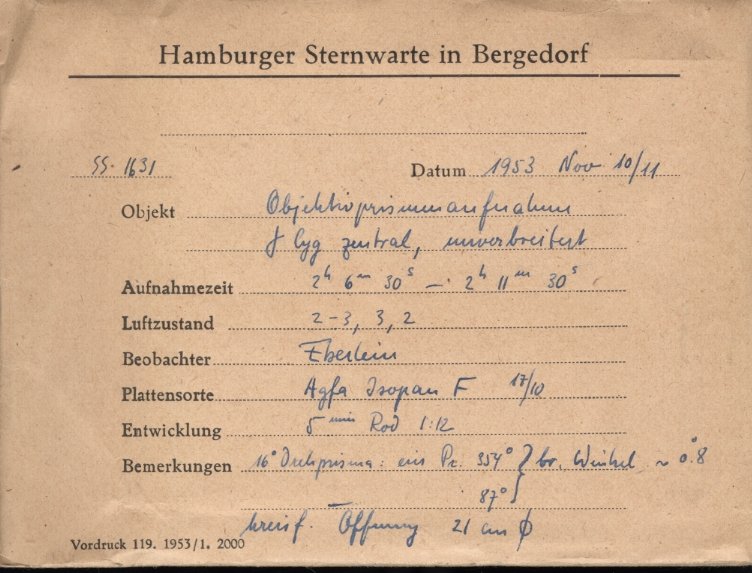 Hamburger Sternwarte in Bergedorf
SS. 1631 Datum 1953 Nov 10/11
Objekt Objektivprismenaufnahme
γ Cyg zentral, unverbreitert
Aufnahmezeit 2h 6m 30s — 2h 11m 30s
Luftzustand 2-3, 3, 2
Beobachter Eberlein
Plattensorte Agfa Isopan F 17/10
Entwicklung 5 min Rod 1:12
Bemerkungen 16° Drehprisma: ein Pr. 354° } br. Winkel ~ 0.°8
87° }
kreisf. Öffnung 21 cm ϕ
Vordruck 119. 1953/1. 2000